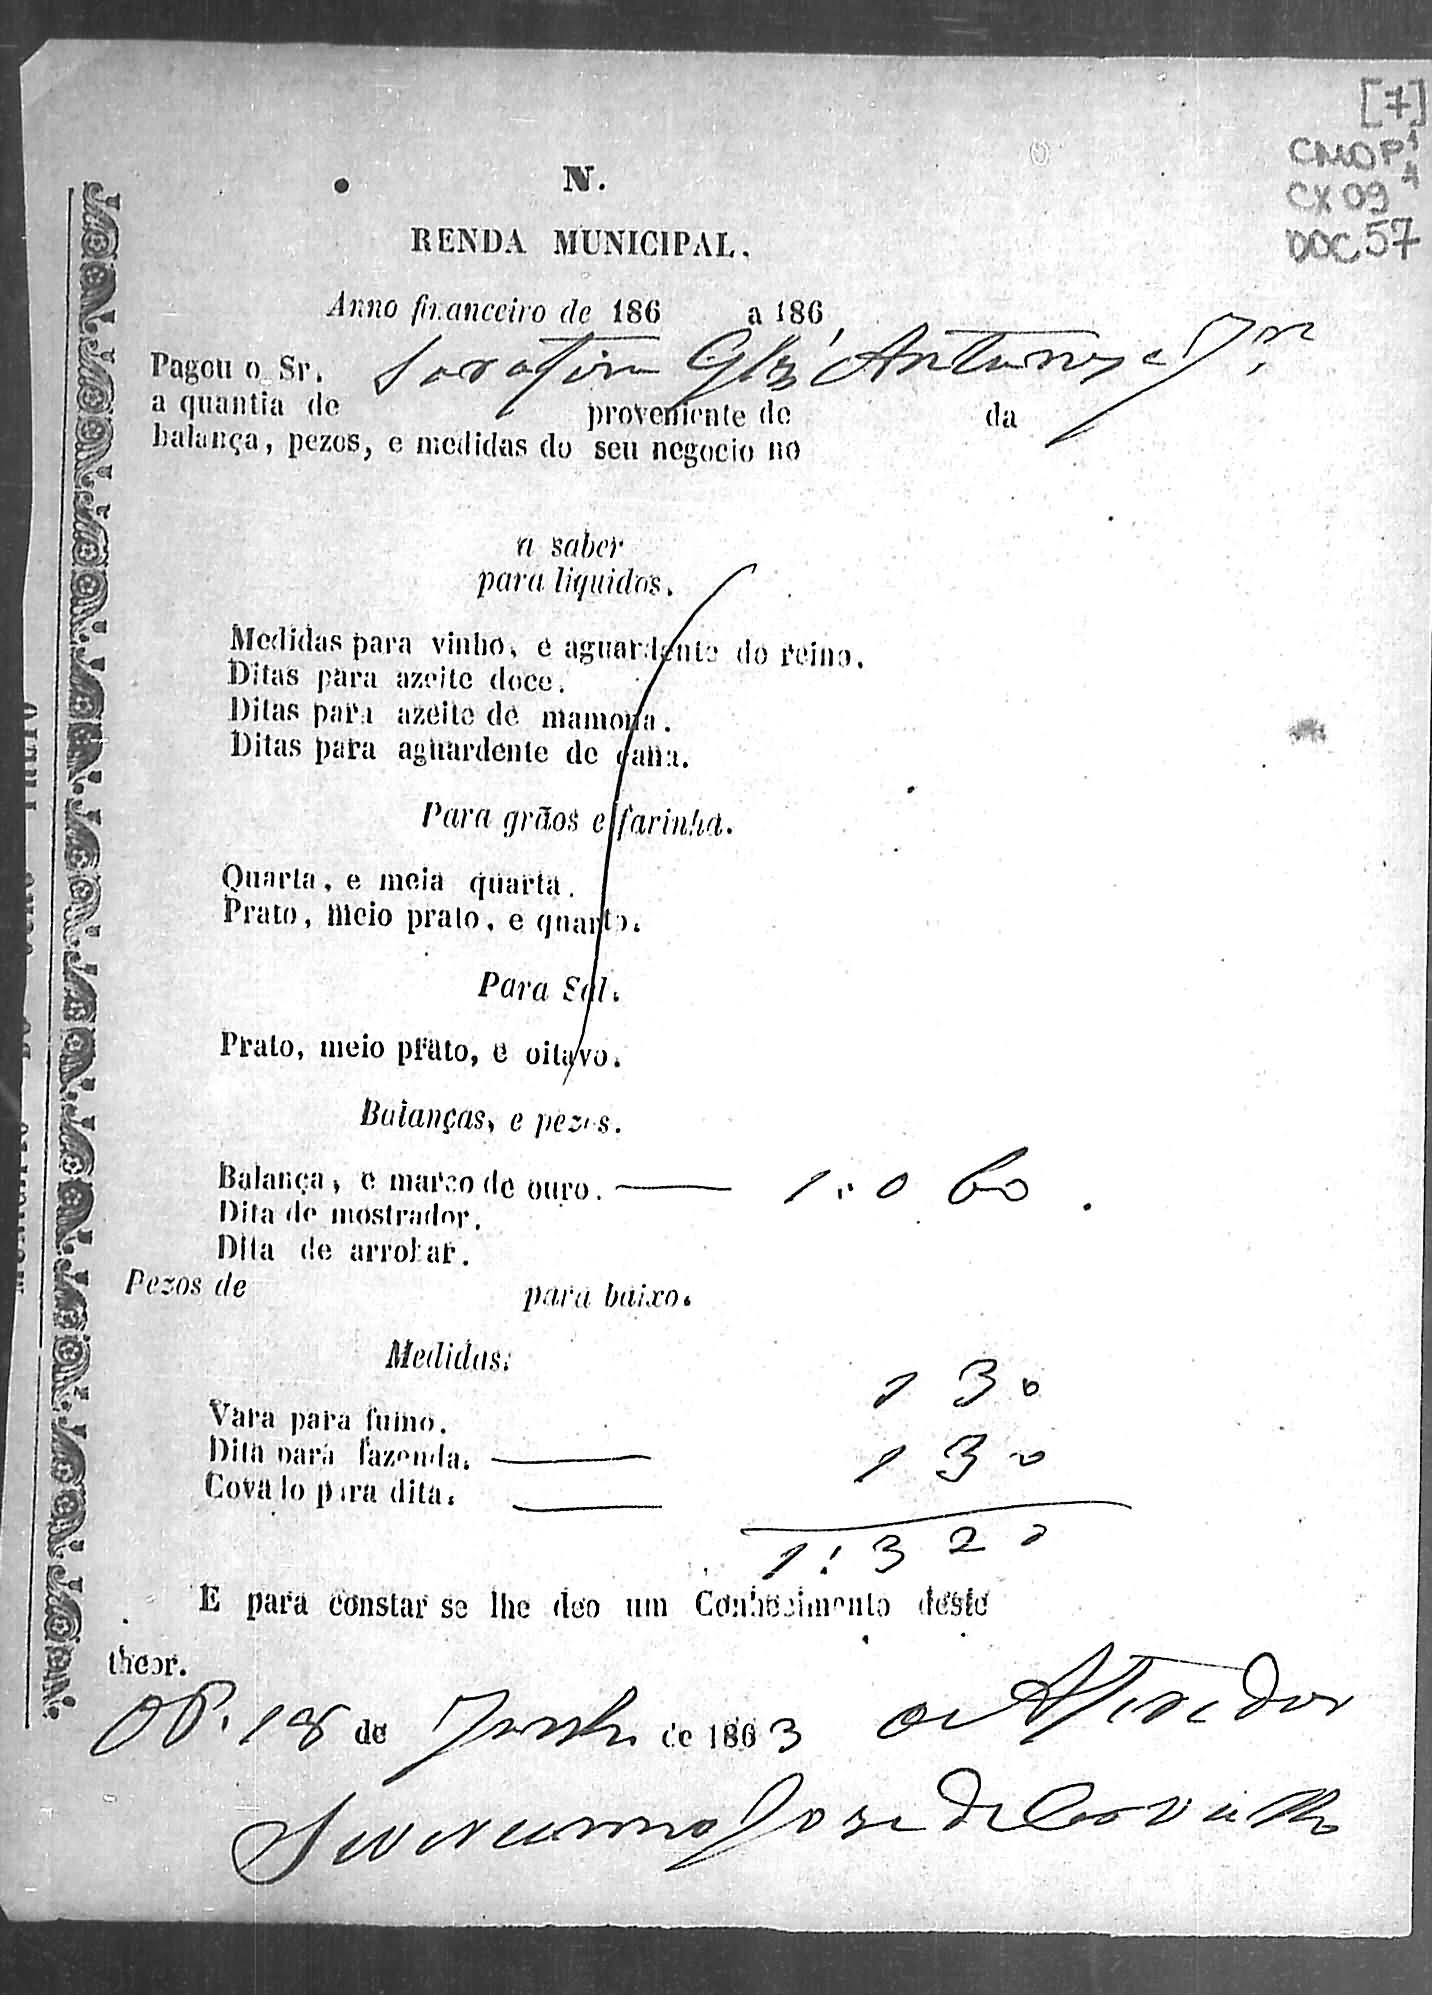 [7]
CMOP
CX 09
DOC. 57
N.
RENDA MUNICIPAL.
Anno financeiro de 186 a 186
Pagou o Sr. Sarafim Glz' Antunes e Jr.
a quantia de proveniente de da
balança, pezos, e medidas do seu negocio no
a saber
para liquidos.
Medidas para vinho, e aguardente do reino.
Ditas para azeite doce.
Ditas para azeite de mamona.
Ditas para aguardente de cana.
Para grãos e farinha.
Quarta, e meia quarta.
Prato, meio prato, e quarto.
Para Sal.
Prato, meio prato, e oitavo.
Balanças, e pezos.
Balança, e marco de ouro. — 1:060.
Dita de mostrador.
Dita de arrobar.
Pezos de para baixo.
Medidas.
130
Vara para fumo.
Dita para fazenda. — 130
Covado para dita. —
1:320
E para constar se lhe deo um Conhecimento deste
theor.
OP. 18 de Junho de 1863 o Aferedor
Severeanno Jose de Carvalho